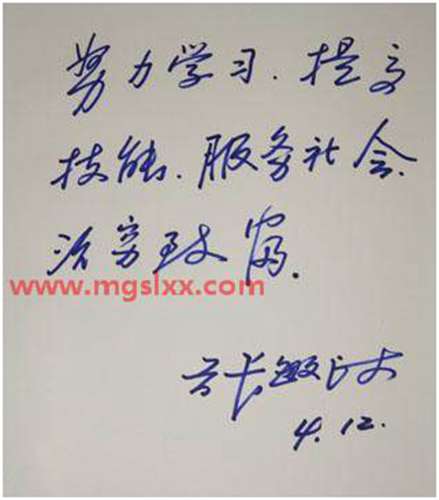 努力学习.提高
技能.服务社会.
治穷致富.
www.mgslxx.com
张
4.12.